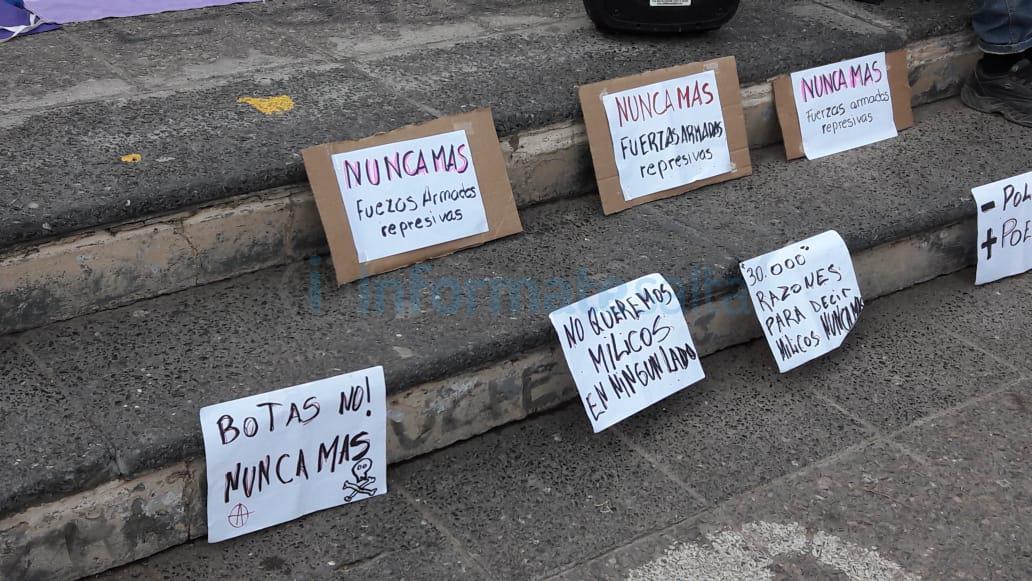 NUNCA MAS
Fuezas Armados
represivas
NUNCA MAS
FUERZAS ARMADAS
represivas
NUNCA MAS
Fuerzas armados
represivas
- POL
+ POE
30.000
RAZONES
PARA DECIR
MILICOS NUNCA MAS
NO QUEREMOS
MILICOS
EN NINGUN LADO
BOTAS NO!
NUNCA MAS
i informatesalta